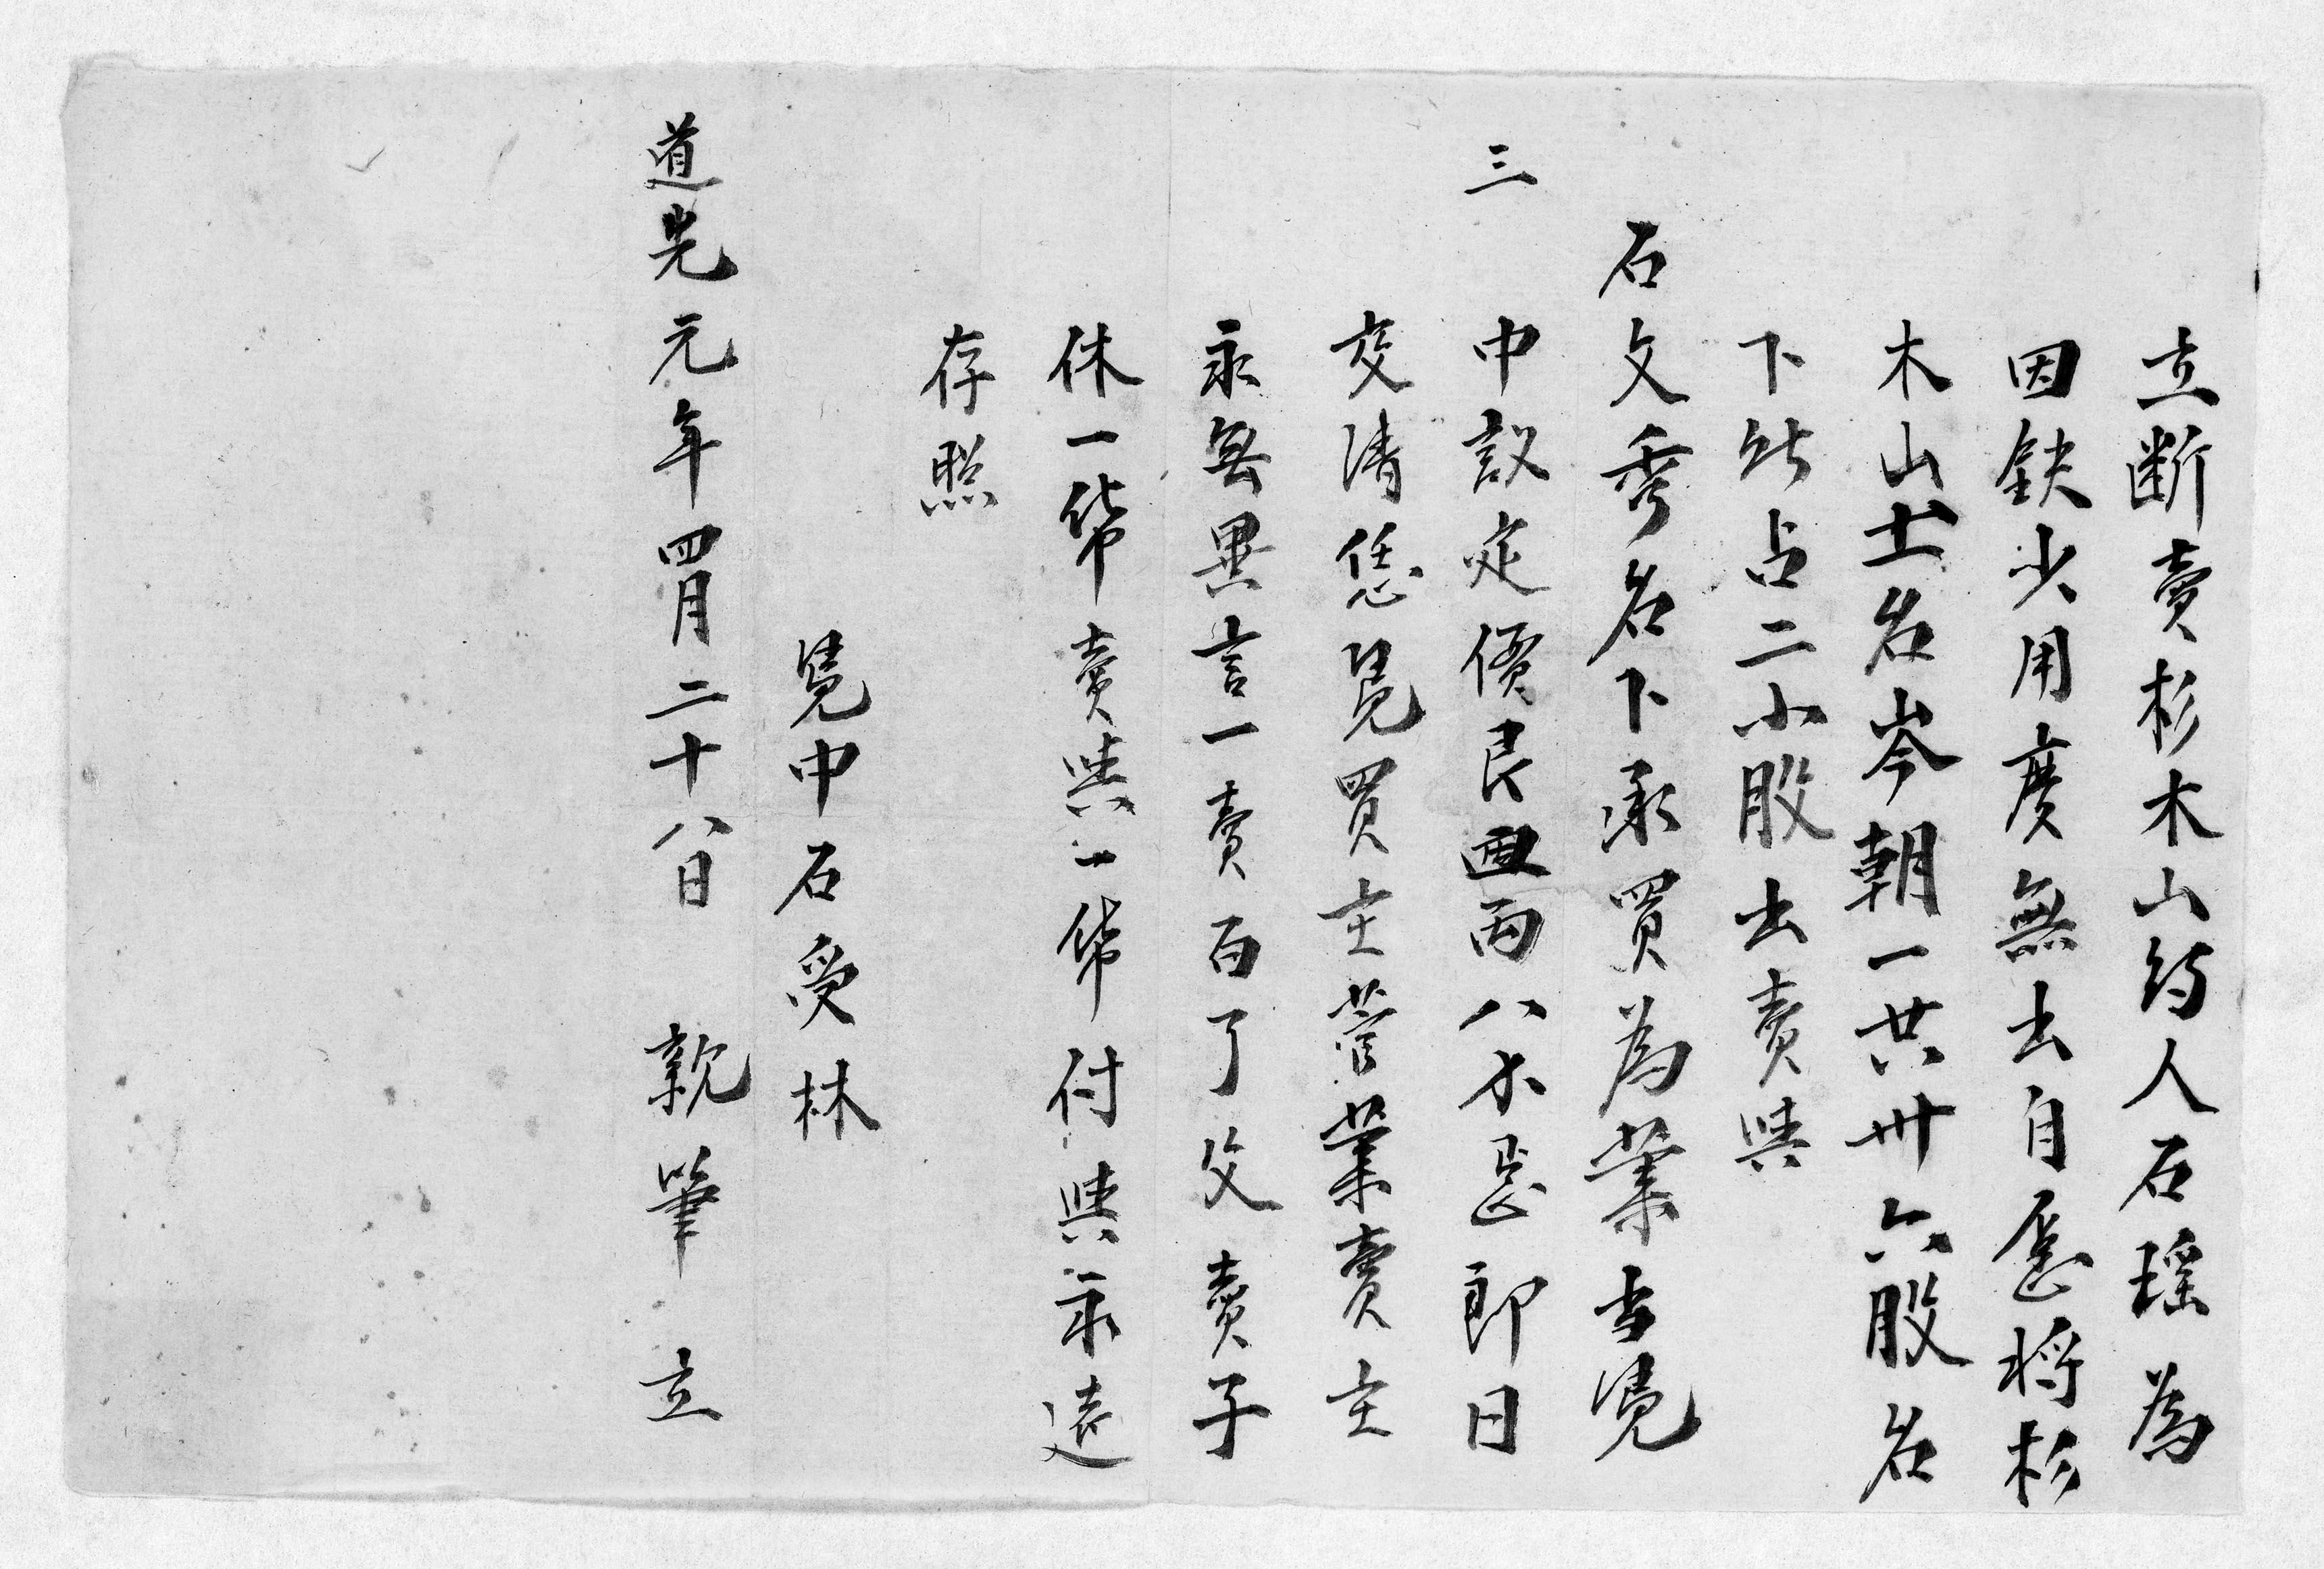 立断賣杉木山約人石瑶為
因缺少用度無出自愿将杉
木山土名岑朝一共卅六股名
下所占二小股出賣與
石文秀名下承買為業當憑
三
中議定價艮兩八不惪即日
交清恁凴買主管業賣主
永無異言一賣百了父賣子
休一幣賣與一幣付與永遠
存照
憑中石受林
道光元年四月二十八日 親筆 立